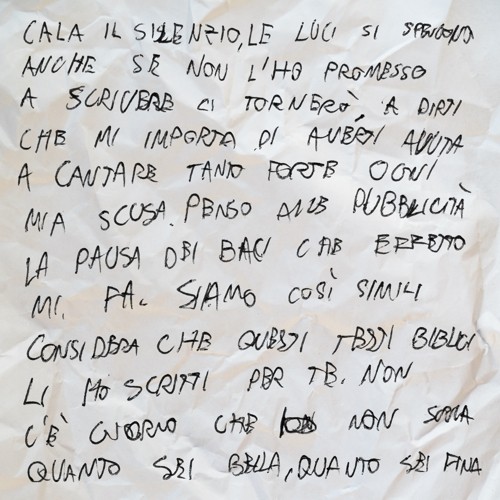 CALA IL SILENZIO, LE LUCI SI SPENGONO
ANCHE SE NON L'HO PROMESSO
A SCRIVERE CI TORNERÒ, A DIRTI
CHE MI IMPORTA DI AVERTI AVUTA
A CANTARE TANTO FORTE OGNI
MIA SCUSA. PENSO ALLE PUBBLICITÀ
LA PAUSA DEI BACI CHE EFFETTO
MI. FA. SIAMO COSÌ SIMILI
CONSIDERA CHE QUESTI TESTI BIBLICI
LI HO SCRITTI PER TE. NON
C'È GIORNO CHE NON
QUANTO SEI BELLA, QUANTO SEI FINA